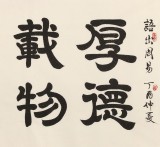 厚德
載物
語出周易
丁酉仲夏